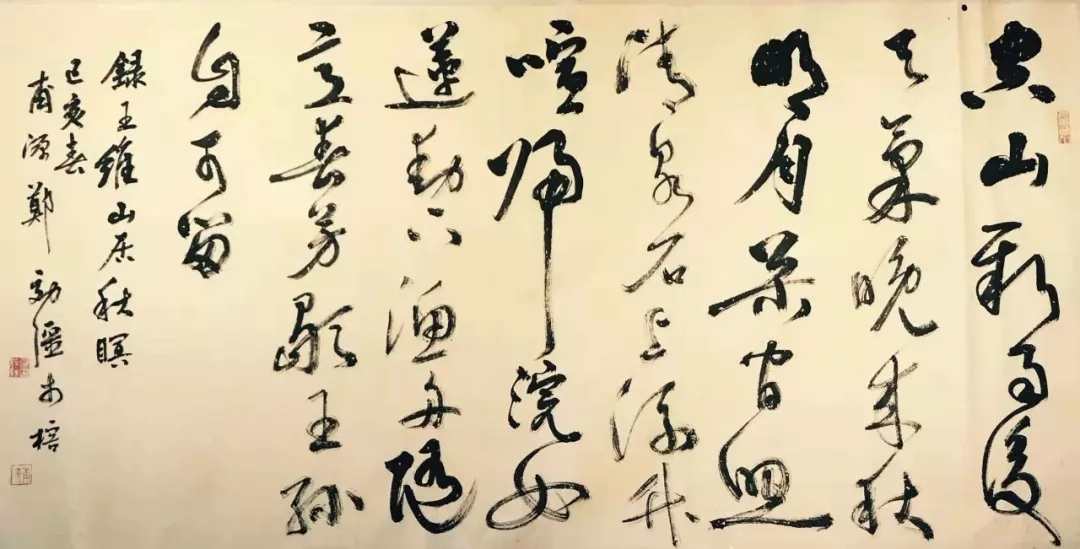 空山新雨後
天氣晚來秋
明月松間照
清泉石上流竹
喧歸浣女
蓮動下漁舟隨
意春芳歇王孫
自可留
錄王維山居秋暝
己亥春
源鄭於榕